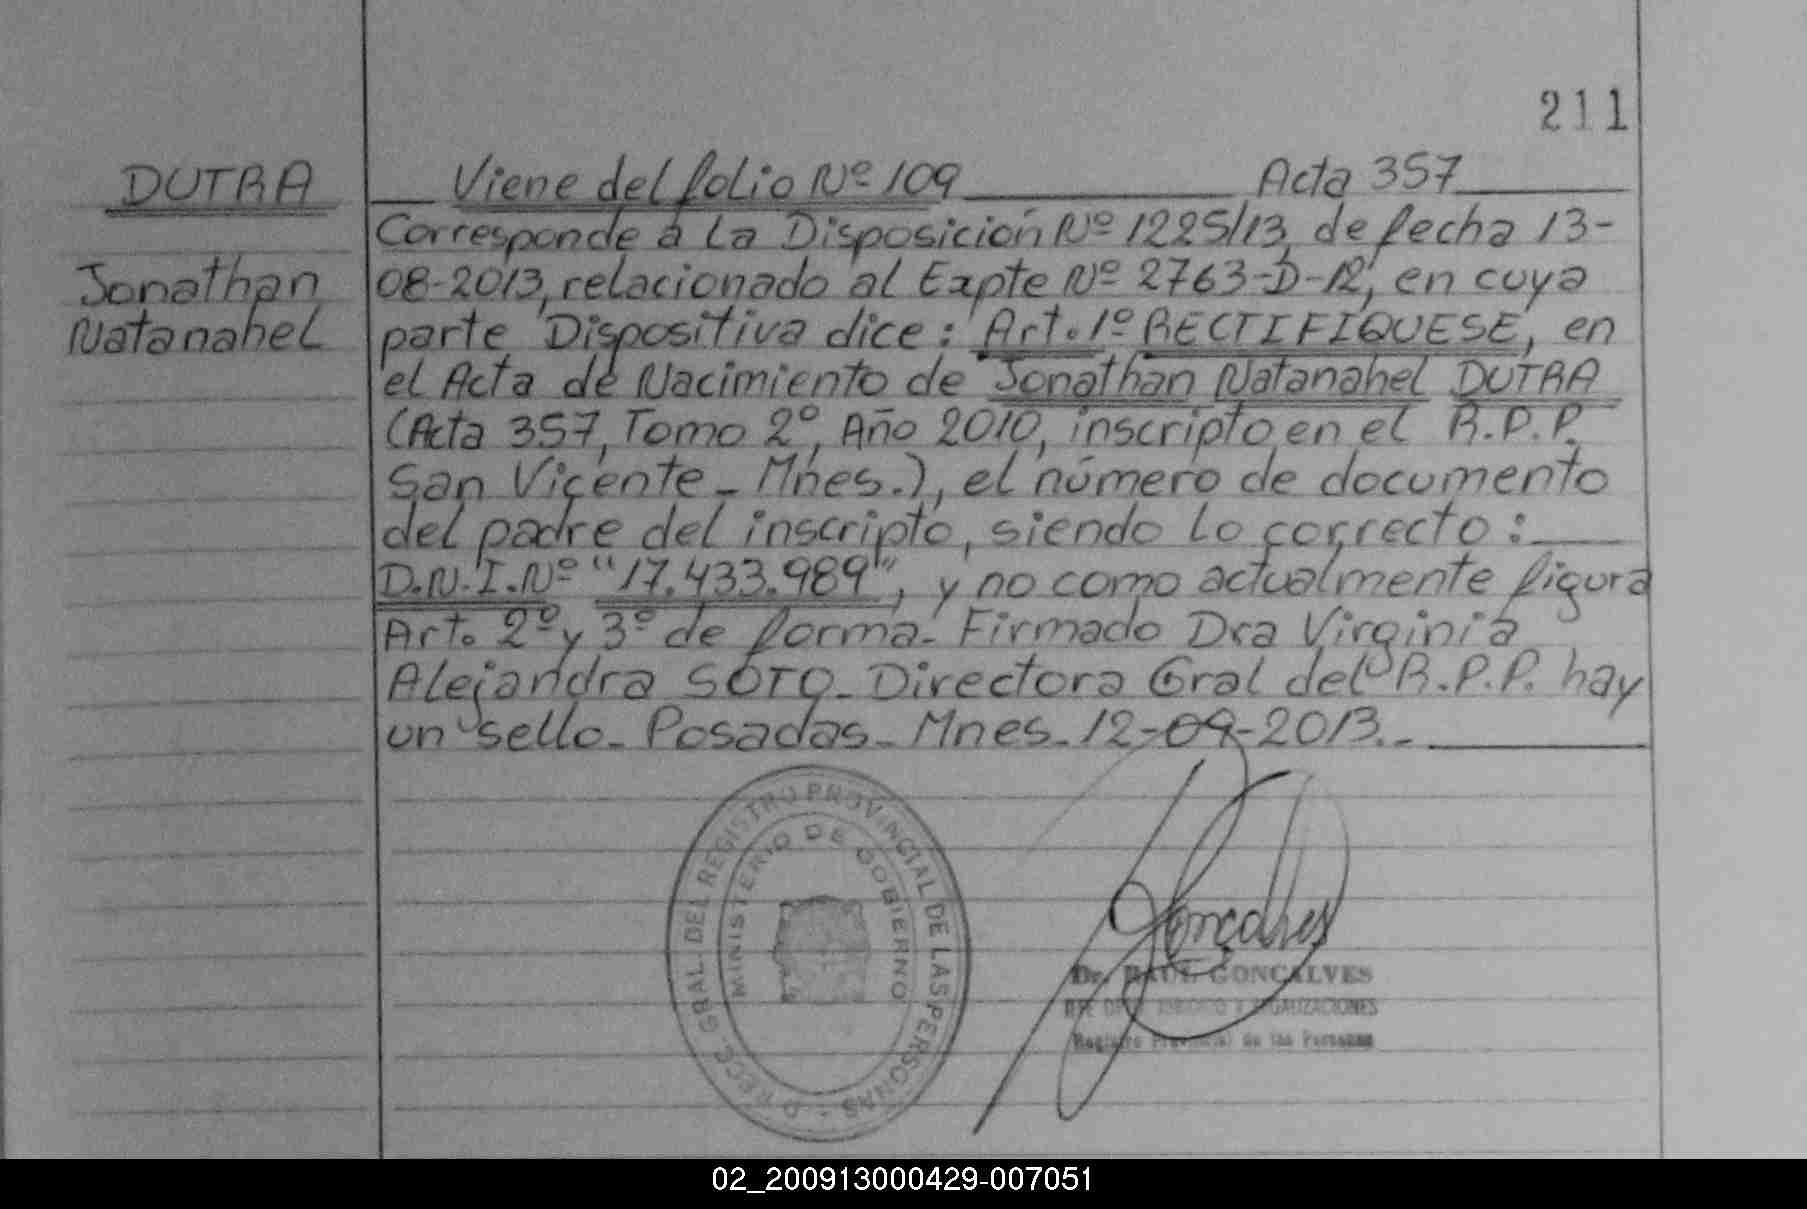 211
DUTRA
Jonathan
Natanahel
Viene del folio Nº 109 Acta 357
Corresponde a la Disposición Nº 1225/13, de fecha 13-
08-2013, relacionado al Expte Nº 2763-D-12, en cuya
parte Dispositiva dice: Art. 1º RECTIFIQUESE, en
el Acta de Nacimiento de Jonathan Natanahel DUTRA
(Acta 357, Tomo 2º, Año 2010, inscripto en el R.P.P.
San Vicente - Mnes.), el número de documento
del padre del inscripto, siendo lo correcto:
D.N.I. Nº "17.433.989", y no como actualmente figura
Art. 2º y 3º de forma - Firmado Dra Virginia
Alejandra SOTO - Directora Gral del R.P.P. hay
un sello - Posadas - Mnes - 12-09-2013.-
DEL REGISTRO PROVINCIAL DE LAS PERSONAS
MINISTERIO DE GOBIERNO
Goncalves
Dr. RAUL GONCALVES
Registro Provincial de las Personas
02_200913000429-007051